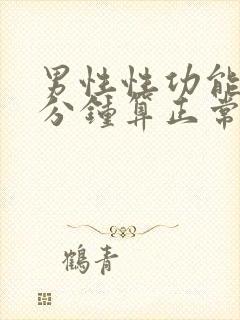 男性性功能
分鐘算正常
鶴青